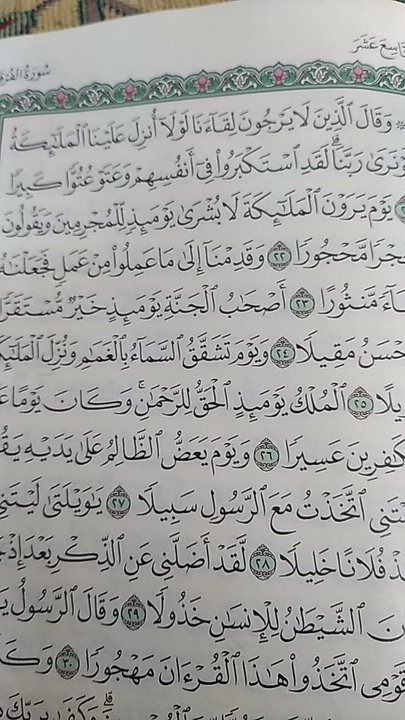 سُورَةُ الفُرْقَ
تَاسِعَ عَشَرَ
۞ وَقَالَ ٱلَّذِينَ لَا يَرْجُونَ لِقَآءَنَا لَوْلَآ أُنزِلَ عَلَيْنَا ٱلْمَلَٰٓئِكَةُ
وْ نَرَىٰ رَبَّنَا ۗ لَقَدِ ٱسْتَكْبَرُوا۟ فِىٓ أَنفُسِهِمْ وَعَتَوْ عُتُوًّا كَبِيرًا
يَوْمَ يَرَوْنَ ٱلْمَلَٰٓئِكَةَ لَا بُشْرَىٰ يَوْمَئِذٍ لِّلْمُجْرِمِينَ وَيَقُولُونَ
حِجْرًا مَّحْجُورًا ٢٢ وَقَدِمْنَآ إِلَىٰ مَا عَمِلُوا۟ مِنْ عَمَلٍ فَجَعَلْنَٰهُ
بَآءً مَّنثُورًا ٢٣ أَصْحَٰبُ ٱلْجَنَّةِ يَوْمَئِذٍ خَيْرٌ مُّسْتَقَرًّا
حْسَنُ مَقِيلًا ٢٤ وَيَوْمَ تَشَقَّقُ ٱلسَّمَآءُ بِٱلْغَمَٰمِ وَنُزِّلَ ٱلْمَلَٰٓئِكَ
يلًا ٢٥ ٱلْمُلْكُ يَوْمَئِذٍ ٱلْحَقُّ لِلرَّحْمَٰنِ ۚ وَكَانَ يَوْمًا عَ
كَٰفِرِينَ عَسِيرًا ٢٦ وَيَوْمَ يَعَضُّ ٱلظَّالِمُ عَلَىٰ يَدَيْهِ يَقُ
يْتَنِى ٱتَّخَذْتُ مَعَ ٱلرَّسُولِ سَبِيلًا ٢٧ يَٰوَيْلَتَىٰ لَيْتَنِى
خِذْ فُلَانًا خَلِيلًا ٢٨ لَّقَدْ أَضَلَّنِى عَنِ ٱلذِّكْرِ بَعْدَ إِذْ جَ
نَ ٱلشَّيْطَٰنُ لِلْإِنسَٰنِ خَذُولًا ٢٩ وَقَالَ ٱلرَّسُولُ يَ
قَوْمِى ٱتَّخَذُوا۟ هَٰذَا ٱلْقُرْءَانَ مَهْجُورًا ٣٠ وَكَ
وَكَفَىٰ بِرَبِّكَ